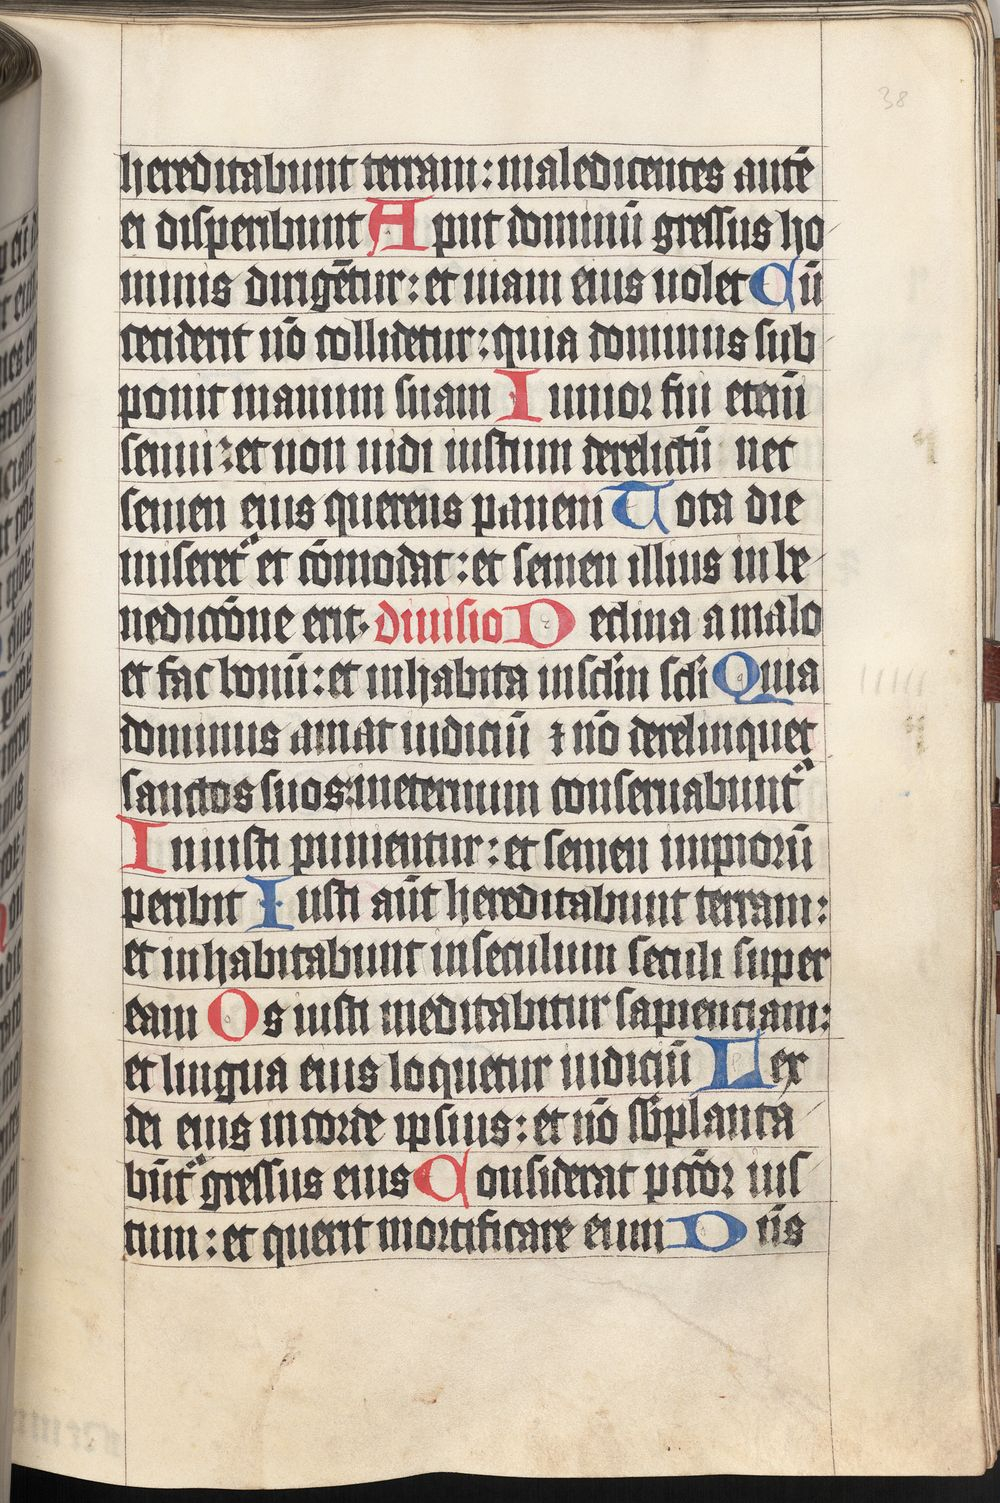 38
hereditabunt terram: maledicentes autē
ei disperibunt Aput dominū gressus ho
minis dirigētur: et uiam eius uolet Cū
ceciderit nō collidetur: quia dominus sub
ponit manum suam Iunior fui eteni̅
senui: et non uidi iustum derelictū nec
semen eius querens panem Tota die
miseret᷑ et cōmodat: et semen illius in be
nedictōne erit diuisio Declina a malo
et fac bonū: et inhabita in sclm̄ scl̄i Quia
dominus amat iudiciū ⁊ nō derelinquet
sanctos suos: in eternum conseruabunt᷑
Iniusti punientur: et semen impiorū
peribit Iusti aūt hereditabunt terram:
et inhabitabunt in seculum seculi super
eam Os iusti meditabitur sapienciam:
et lingua eius loquetur iudiciū Lex
dei eius in corde ipsius: et nō sūplanta
būt᷑ gressus eius Considerat pctōꝛ ius
tum: et querit mortificare eum Dn̄s